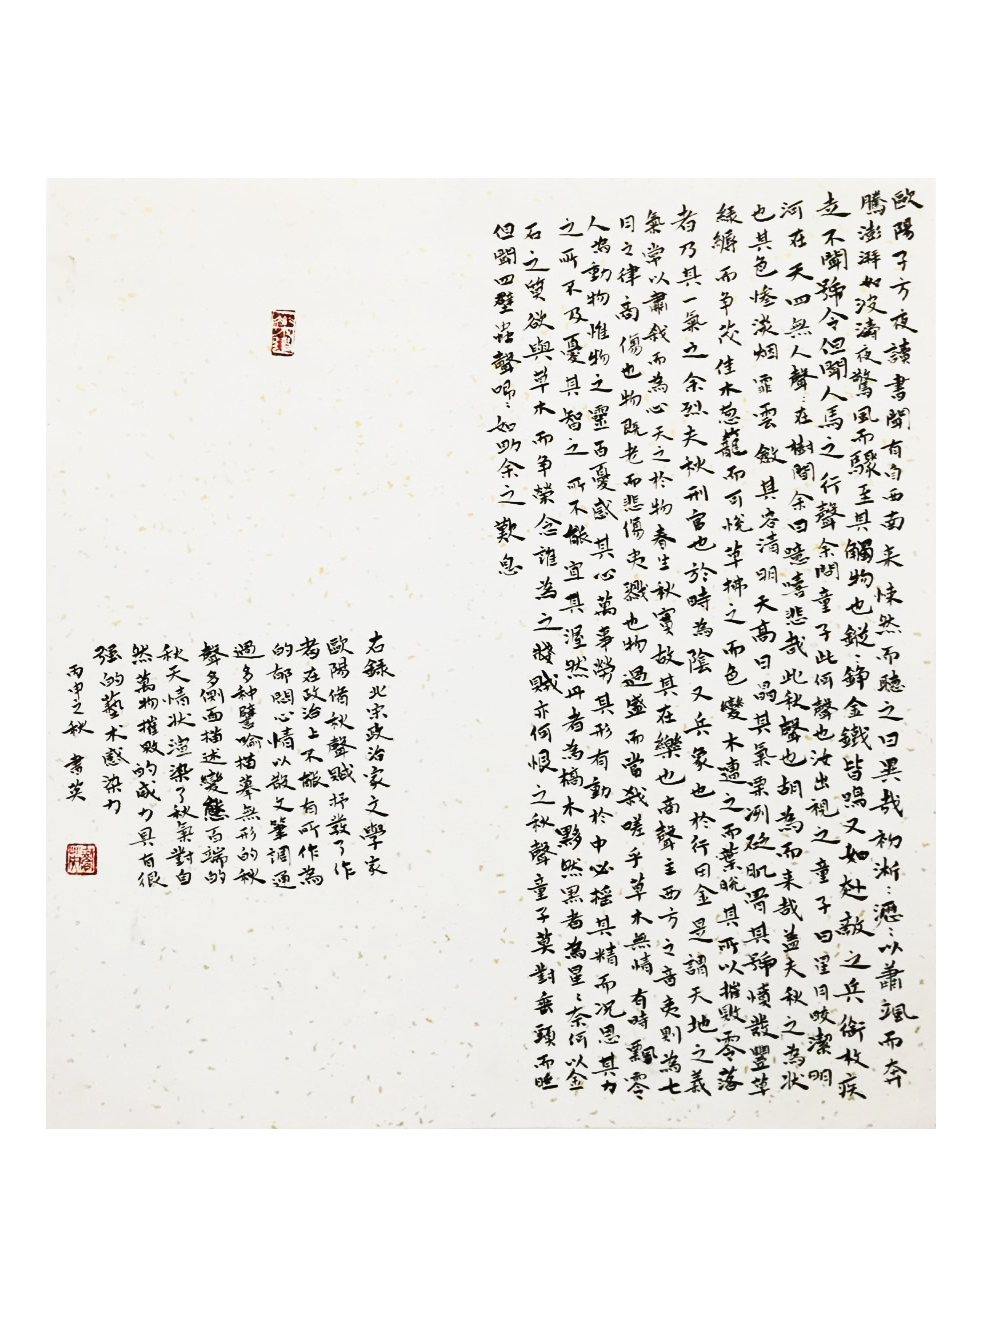 歐陽子方夜讀書聞有自西南來悚然而聽之曰異哉初淅：瀝：以蕭颯而奔
騰澎湃如波濤夜驚風而驟至其觸物也鏦：錚金鐵皆鳴又如赴敵之兵銜枚疾
走不聞號令但聞人馬之行聲余問童子此何聲也汝出視之童子曰星月皎潔明
河在天四無人聲：在樹間余曰噫嘻悲哉此秋聲也胡為而来哉蓋夫秋之為狀
也其色惨淡烟霏雲斂其容清明天高日晶其氣栗冽砭肌骨其號憤發豐草
綠縟而争茂佳木葱蘢而可悅草拂之而色變木遭之而葉脫其所以摧敗零落
者乃其一氣之余烈夫秋刑官也於時為陰又兵象也於行曰金是謂天地之義
氣常以肅殺而為心天之於物春生秋實故其在樂也商聲主西方之音夷則為七
月之律商傷也物既老而悲傷夷戮也物過盛而當殺嗟乎草木無情有時飄零
人為動物惟物之靈百憂感其心萬事勞其形有動於中必摇其精而况思其力
之所不及憂其智之所不能宜其渥然丹者為槁木黟然黑者為星：奈何以金
石之質欲與草木而争榮念誰為之戕賊亦何恨之秋聲童子莫對垂頭而睡
但聞四壁蟲聲唧：如助余之歎息
右録北宋政治家文學家
歐陽脩秋聲賦抒發了作
者在政治上不能有所作為
的郁悶心情以散文筆調通
過多种譬喻描摹無形的秋
聲多側面描述變態百端的
秋天情狀渲染了秋氣對自
然萬物摧敗的威力具有很
强的藝术感染力
丙申之秋 書英